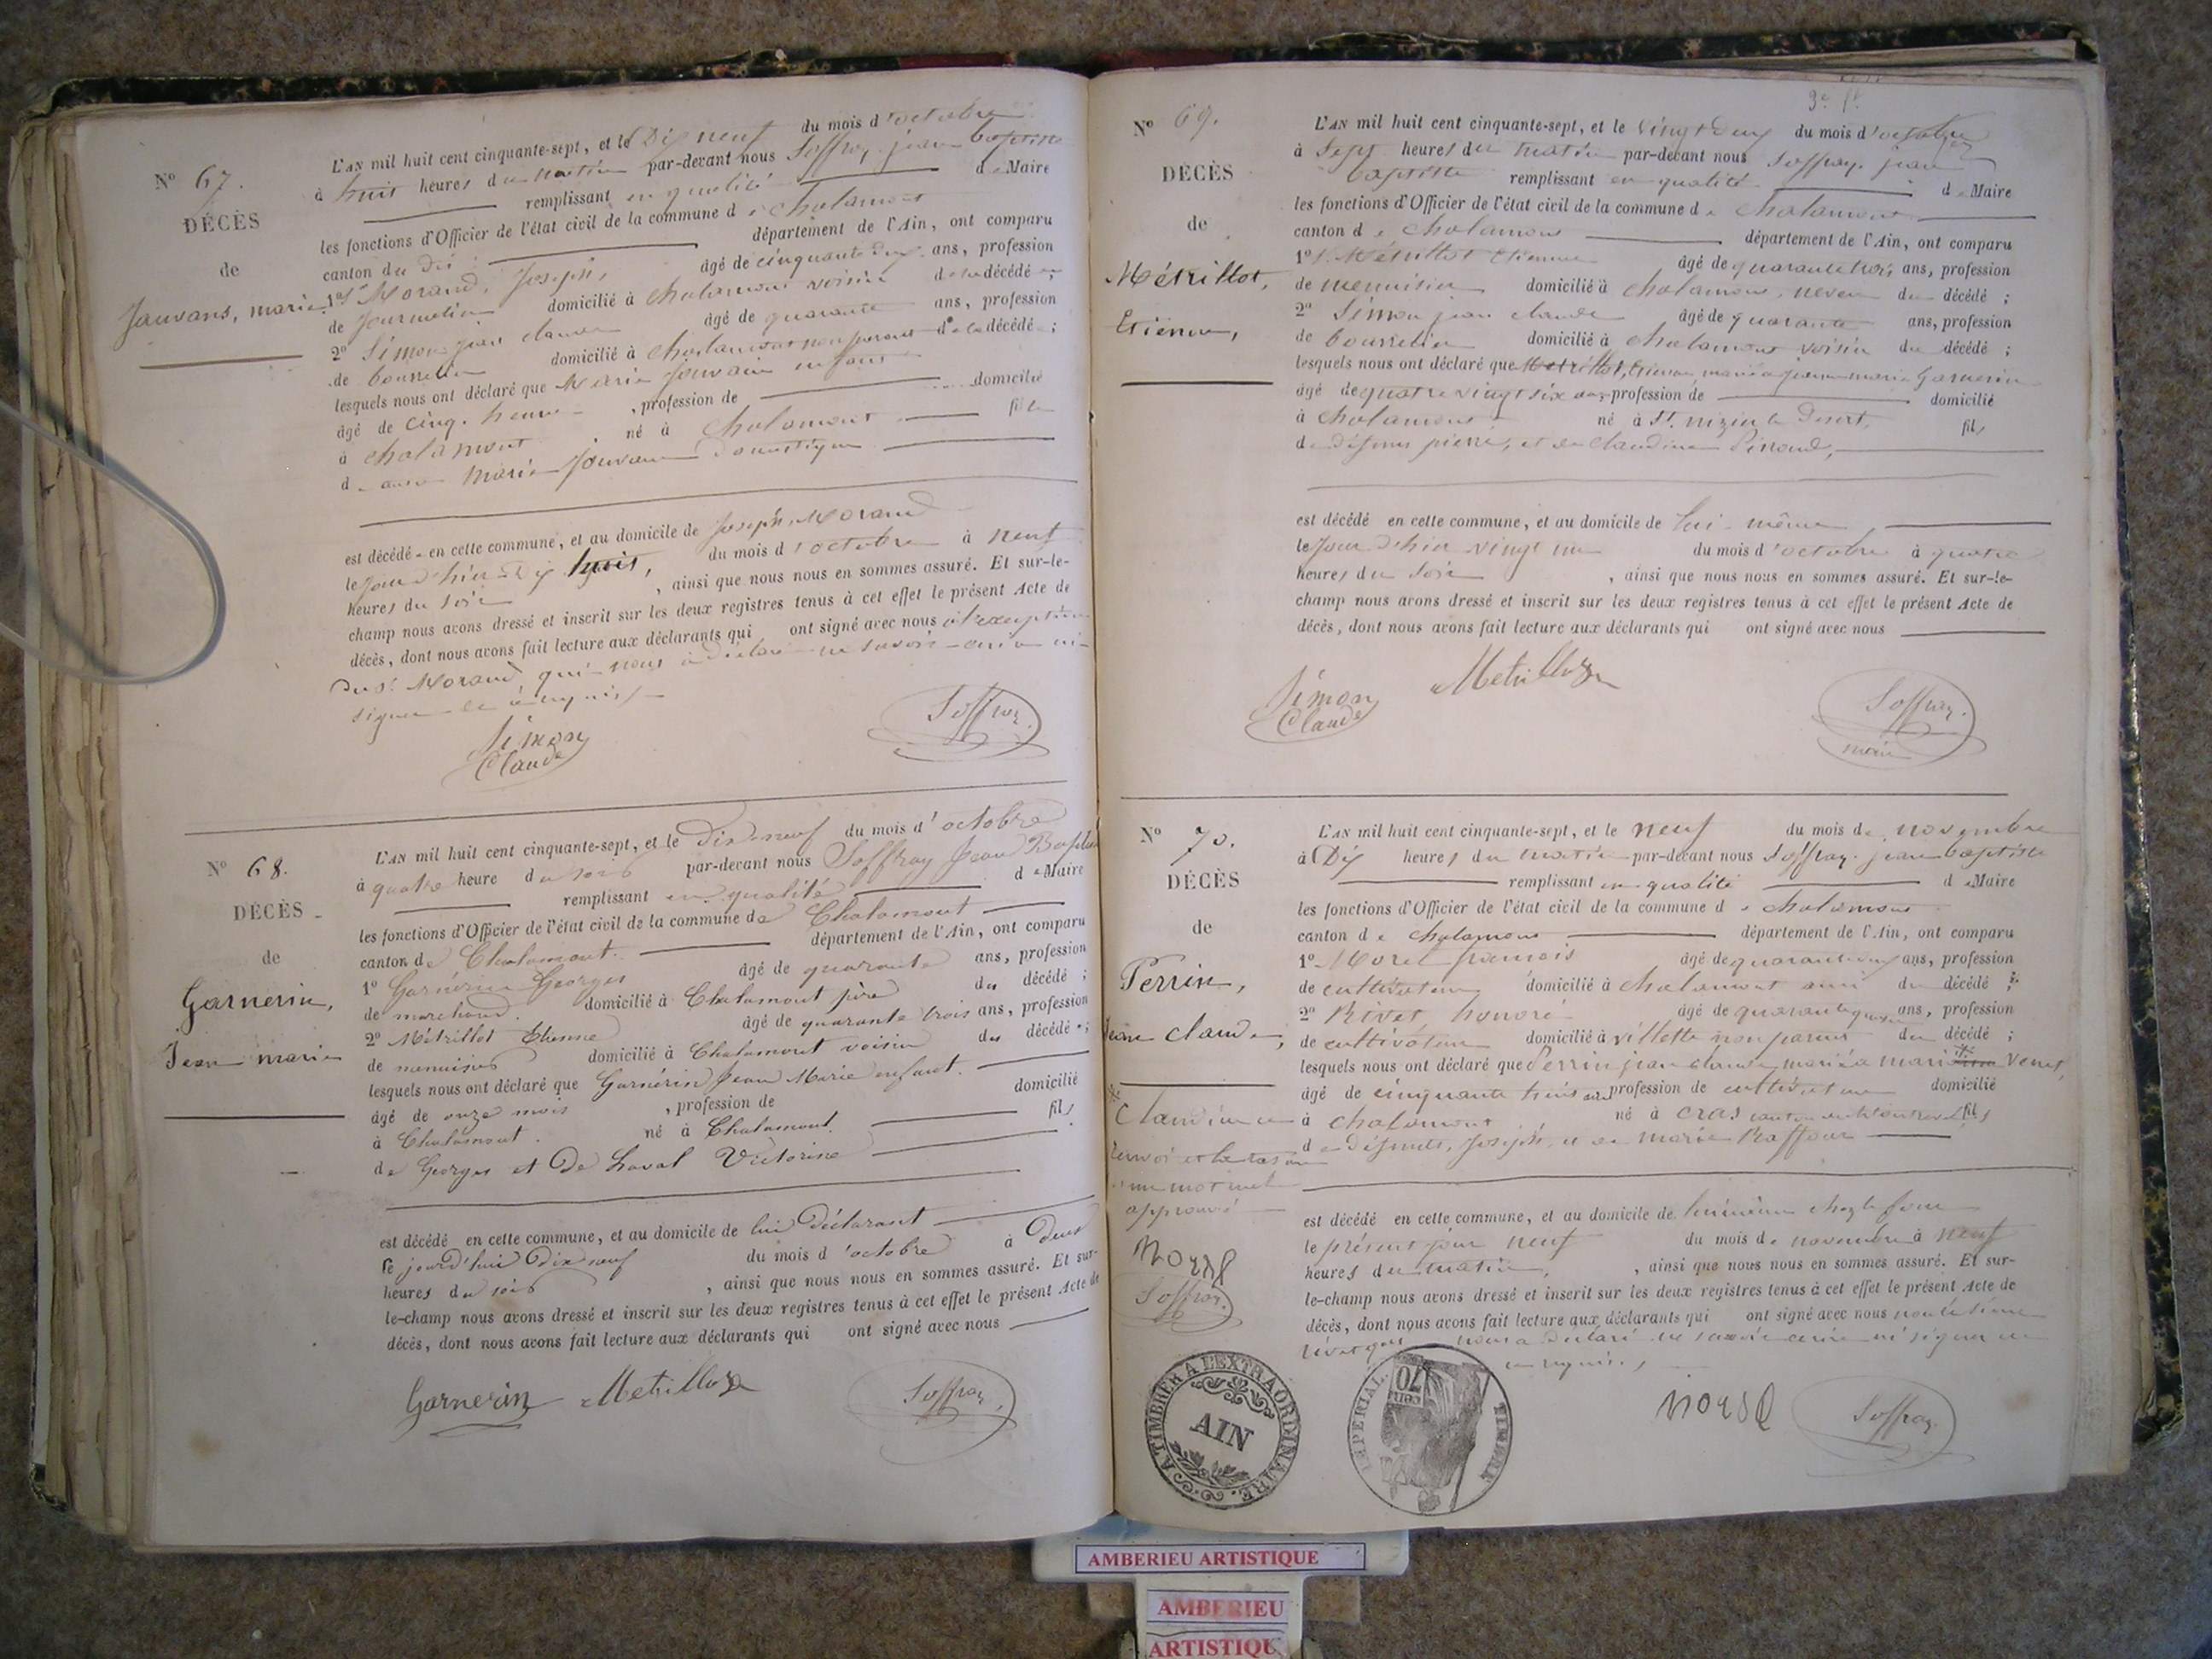 N° 67.
DÉCÈS
de
Jauvans, marie
L'AN mil huit cent cinquante-sept, et le Dix neuf du mois d'octobre
à huit heures du matin par-devant nous Soffray jean baptiste
remplissant en qualité de Maire
les fonctions d'Officier de l'état civil de la commune de chalamont
canton du dit département de l'Ain, ont comparu
1° Sr Morand, Joseph, âgé de cinquante deux ans, profession
de Journalier domicilié à chalamont voisin de la décédée ;
2° Simon jean claude âgé de quarante ans, profession
de bourrelier domicilié à chalamont non parent de la décédée ;
lesquels nous ont déclaré que Marie Jouvans enfant
âgé de cinq heures , profession de domicilié
à chalamont né à chalamont fille
de Marie Jouvans Domestique
est décédée en cette commune, et au domicile de Joseph Morand
le jour d'hier dix huit, du mois d'octobre à neuf
heures du soir , ainsi que nous nous en sommes assuré. Et sur-le-
champ nous avons dressé et inscrit sur les deux registres tenus à cet effet le présent Acte de
décès, dont nous avons fait lecture aux déclarants qui ont signé avec nous à l'exception
du Sr Morand qui nous a déclaré ne savoir écrire ni
signer de ce enquis
Simon
Claude
Soffray
N° 68.
DÉCÈS
de
Garnerin,
Jean marie
L'AN mil huit cent cinquante-sept, et le Dix neuf du mois d'octobre
à quatre heure du soir par-devant nous Soffray Jean Baptiste
remplissant en qualité de Maire
les fonctions d'Officier de l'état civil de la commune de Chalamont
canton de Chalamont. département de l'Ain, ont comparu
1° Garnérin Georges âgé de quarante ans, profession
de marchand. domicilié à Chalamont père du décédé ;
2° Métrillot Etienne âgé de quarante trois ans, profession
de menuisier domicilié à Chalamont voisin du décédé ;
lesquels nous ont déclaré que Garnérin Jean Marie enfant.
âgé de onze mois , profession de domicilié
à Chalamont. né à Chalamont. fils
de Georges et De Laval Victorine
est décédé en cette commune, et au domicile de lui Déclarant
le jourd'hui Dix neuf du mois d'octobre à Deux
heures du soir , ainsi que nous nous en sommes assuré. Et sur-
le-champ nous avons dressé et inscrit sur les deux registres tenus à cet effet le présent Acte de
décès, dont nous avons fait lecture aux déclarants qui ont signé avec nous
Garnerin Metrilloz
Soffray
N° 69.
DÉCÈS
de
Métrillot,
Etienne,
L'AN mil huit cent cinquante-sept, et le vingt deux du mois d'octobre
à Sept heures du matin par-devant nous Soffray jean
baptiste remplissant en qualité de Maire
les fonctions d'Officier de l'état civil de la commune de chalamont
canton de chalamont département de l'Ain, ont comparu
1° Sr Métrillot Etienne âgé de quarante trois ans, profession
de menuisier domicilié à chalamont, neveu du décédé ;
2° Simon jean claude âgé de quarante ans, profession
de bourrelier domicilié à chalamont voisin du décédé ;
lesquels nous ont déclaré que Métrillot, Etienne, marié a jeanne marie Garnerin
âgé de quatre vingt six ans, profession de domicilié
à chalamont né à St. nizier le Désert, fils
de défunts pierre, et de Claudine
est décédé en cette commune, et au domicile de lui-même,
le jour d'hier vingt un du mois d'octobre à quatre
heures du soir , ainsi que nous nous en sommes assuré. Et sur-le-
champ nous avons dressé et inscrit sur les deux registres tenus à cet effet le présent Acte de
décès, dont nous avons fait lecture aux déclarants qui ont signé avec nous
Simon
Claude
Metrilloz
Soffray.
maire
N° 70.
DÉCÈS
de
Perrin,
Jean claude,
L'AN mil huit cent cinquante-sept, et le neuf du mois de novembre
à Dix heures du matin par-devant nous Soffray jean baptiste
remplissant en qualité de Maire
les fonctions d'Officier de l'état civil de la commune de chalamont
canton de chalamont département de l'Ain, ont comparu
1° Morel francois âgé de quarante deux ans, profession
de cultivateur domicilié à chalamont ami du décédé ;
2° Rivet honoré âgé de quarante ans, profession
de cultivateur domicilié à villette non parent du décédé ;
lesquels nous ont déclaré que Perrin jean claude marié a marie venet,
âgé de cinquante trois ans profession de cultivateur domicilié
à chalamont né à cras canton de montrevel fils
de défunts, Joseph, et de marie Raffour
* Claudine
renvoi et la rature
d'un mot nul
approuvé
Morel
Soffray.
est décédé en cette commune, et au domicile de lui même chez le four
le présent jour neuf du mois de novembre à neuf
heures du matin, , ainsi que nous nous en sommes assuré. Et sur-
le-champ nous avons dressé et inscrit sur les deux registres tenus à cet effet le présent Acte de
décès, dont nous avons fait lecture aux déclarants qui ont signé avec nous non le sieur
rivet qui nous a déclaré ne savoir écrire ni signer de ce
enquis,
Morel
Soffray.
A TIMBRER A L'EXTRAORDINAIRE.
AIN
TIMBRE IMPERIAL
70 CENT
AMBERIEU ARTISTIQUE
AMBERIEU
ARTISTIQUE